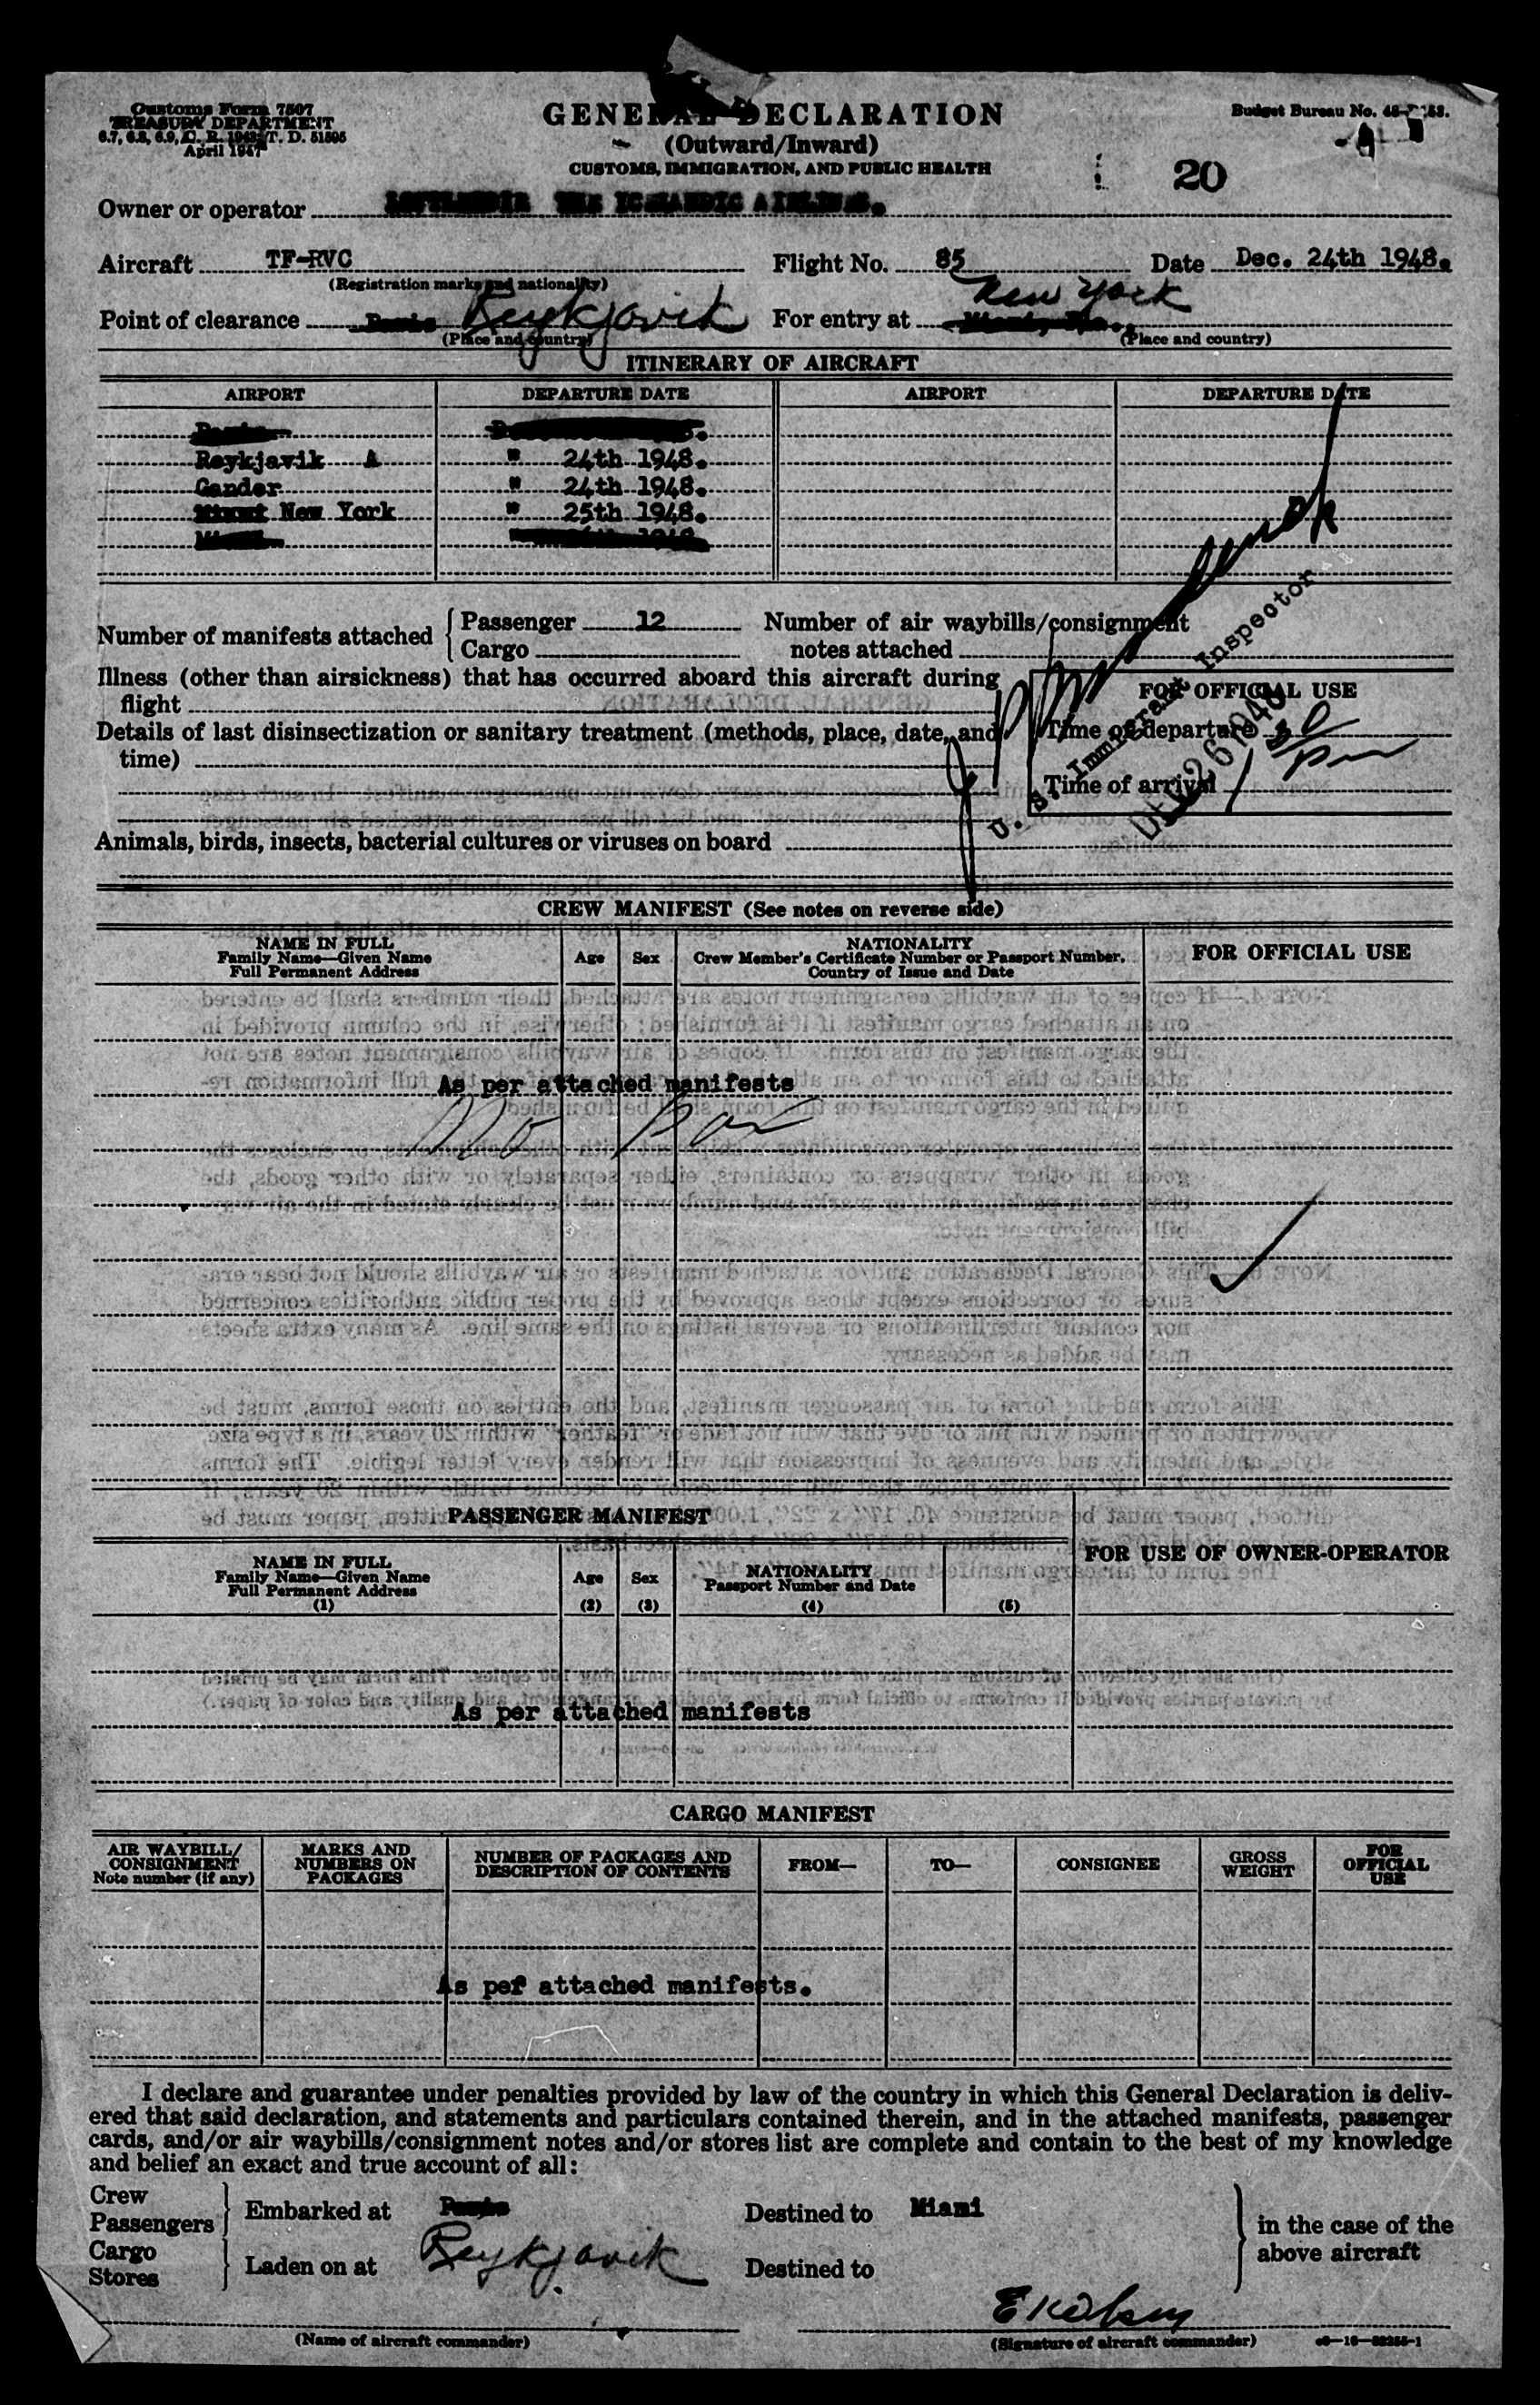 Customs Form 7507
TREASURY DEPARTMENT
April 1947
Budget Bureau No.
GENERAL DECLARATION
(Outward/Inward)
CUSTOMS, IMMIGRATION, AND PUBLIC HEALTH
20
Owner or operator
Aircraft TF-RVC Flight No. 85 Date Dec. 24th 1948.
(Registration marks and nationality)
New York
Point of clearance Reykjavik For entry at
(Place and country) (Place and country)
ITINERARY OF AIRCRAFT
AIRPORT DEPARTURE DATE AIRPORT DEPARTURE DATE
Reykjavik A " 24th 1948.
Gander " 24th 1948.
New York " 25th 1948.
Number of manifests attached Passenger 12 Number of air waybills/consignment
Cargo notes attached
Illness (other than airsickness) that has occurred aboard this aircraft during
flight
FOR OFFICIAL USE
Details of last disinsectization or sanitary treatment (methods, place, date, and
time)
Time of departure
Time of arrival
U. S. Immigrant Inspector
DEC 26 1948
Animals, birds, insects, bacterial cultures or viruses on board
CREW MANIFEST (See notes on reverse side)
NAME IN FULL
Family Name—Given Name
Full Permanent Address
Age Sex
NATIONALITY
Crew Member's Certificate Number or Passport Number,
Country of Issue and Date
FOR OFFICIAL USE
As per attached manifests
PASSENGER MANIFEST
FOR USE OF OWNER-OPERATOR
NAME IN FULL
Family Name—Given Name
Full Permanent Address
(1)
Age
(2)
Sex
(3)
NATIONALITY
Passport Number and Date
(4) (5)
As per attached manifests
CARGO MANIFEST
AIR WAYBILL/
CONSIGNMENT
Note number (if any)
MARKS AND
NUMBERS ON
PACKAGES
NUMBER OF PACKAGES AND
DESCRIPTION OF CONTENTS
FROM— TO— CONSIGNEE
GROSS
WEIGHT
FOR
OFFICIAL
USE
As per attached manifests.
I declare and guarantee under penalties provided by law of the country in which this General Declaration is deliv-
ered that said declaration, and statements and particulars contained therein, and in the attached manifests, passenger
cards, and/or air waybills/consignment notes and/or stores list are complete and contain to the best of my knowledge
and belief an exact and true account of all:
Crew
Passengers Embarked at Destined to Miami
in the case of the
above aircraft
Cargo
Stores Laden on at Reykjavik Destined to
(Name of aircraft commander) (Signature of aircraft commander)